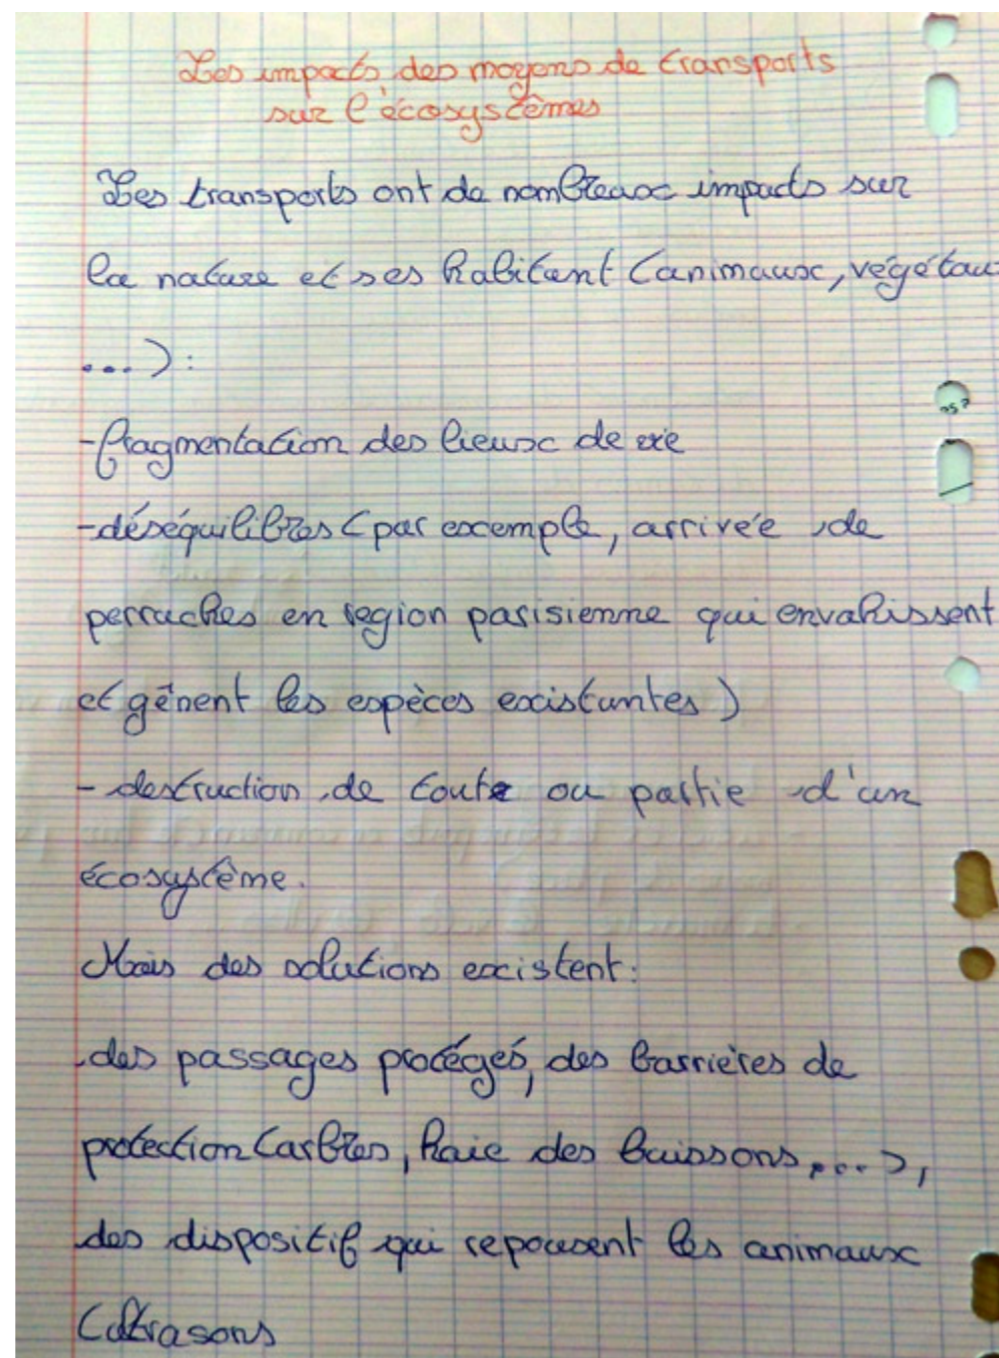 Les impacts des moyens de transports
sur l'écosystèmes
Les transports ont de nombreux impacts sur
la nature et ses habitant (animaux, végétau
...):
-fragmentation des lieux de vie
-déséquilibres (par exemple, arrivée de
perruches en région parisienne qui envahissent
et gênent les espèces existantes)
- destruction de toute ou partie d'un
écosystème.
Mais des solutions existent:
des passages protégés, des barrières de
protection (arbres, haie des buissons,...),
des dispositif qui repousent les animaux
(ultrasons